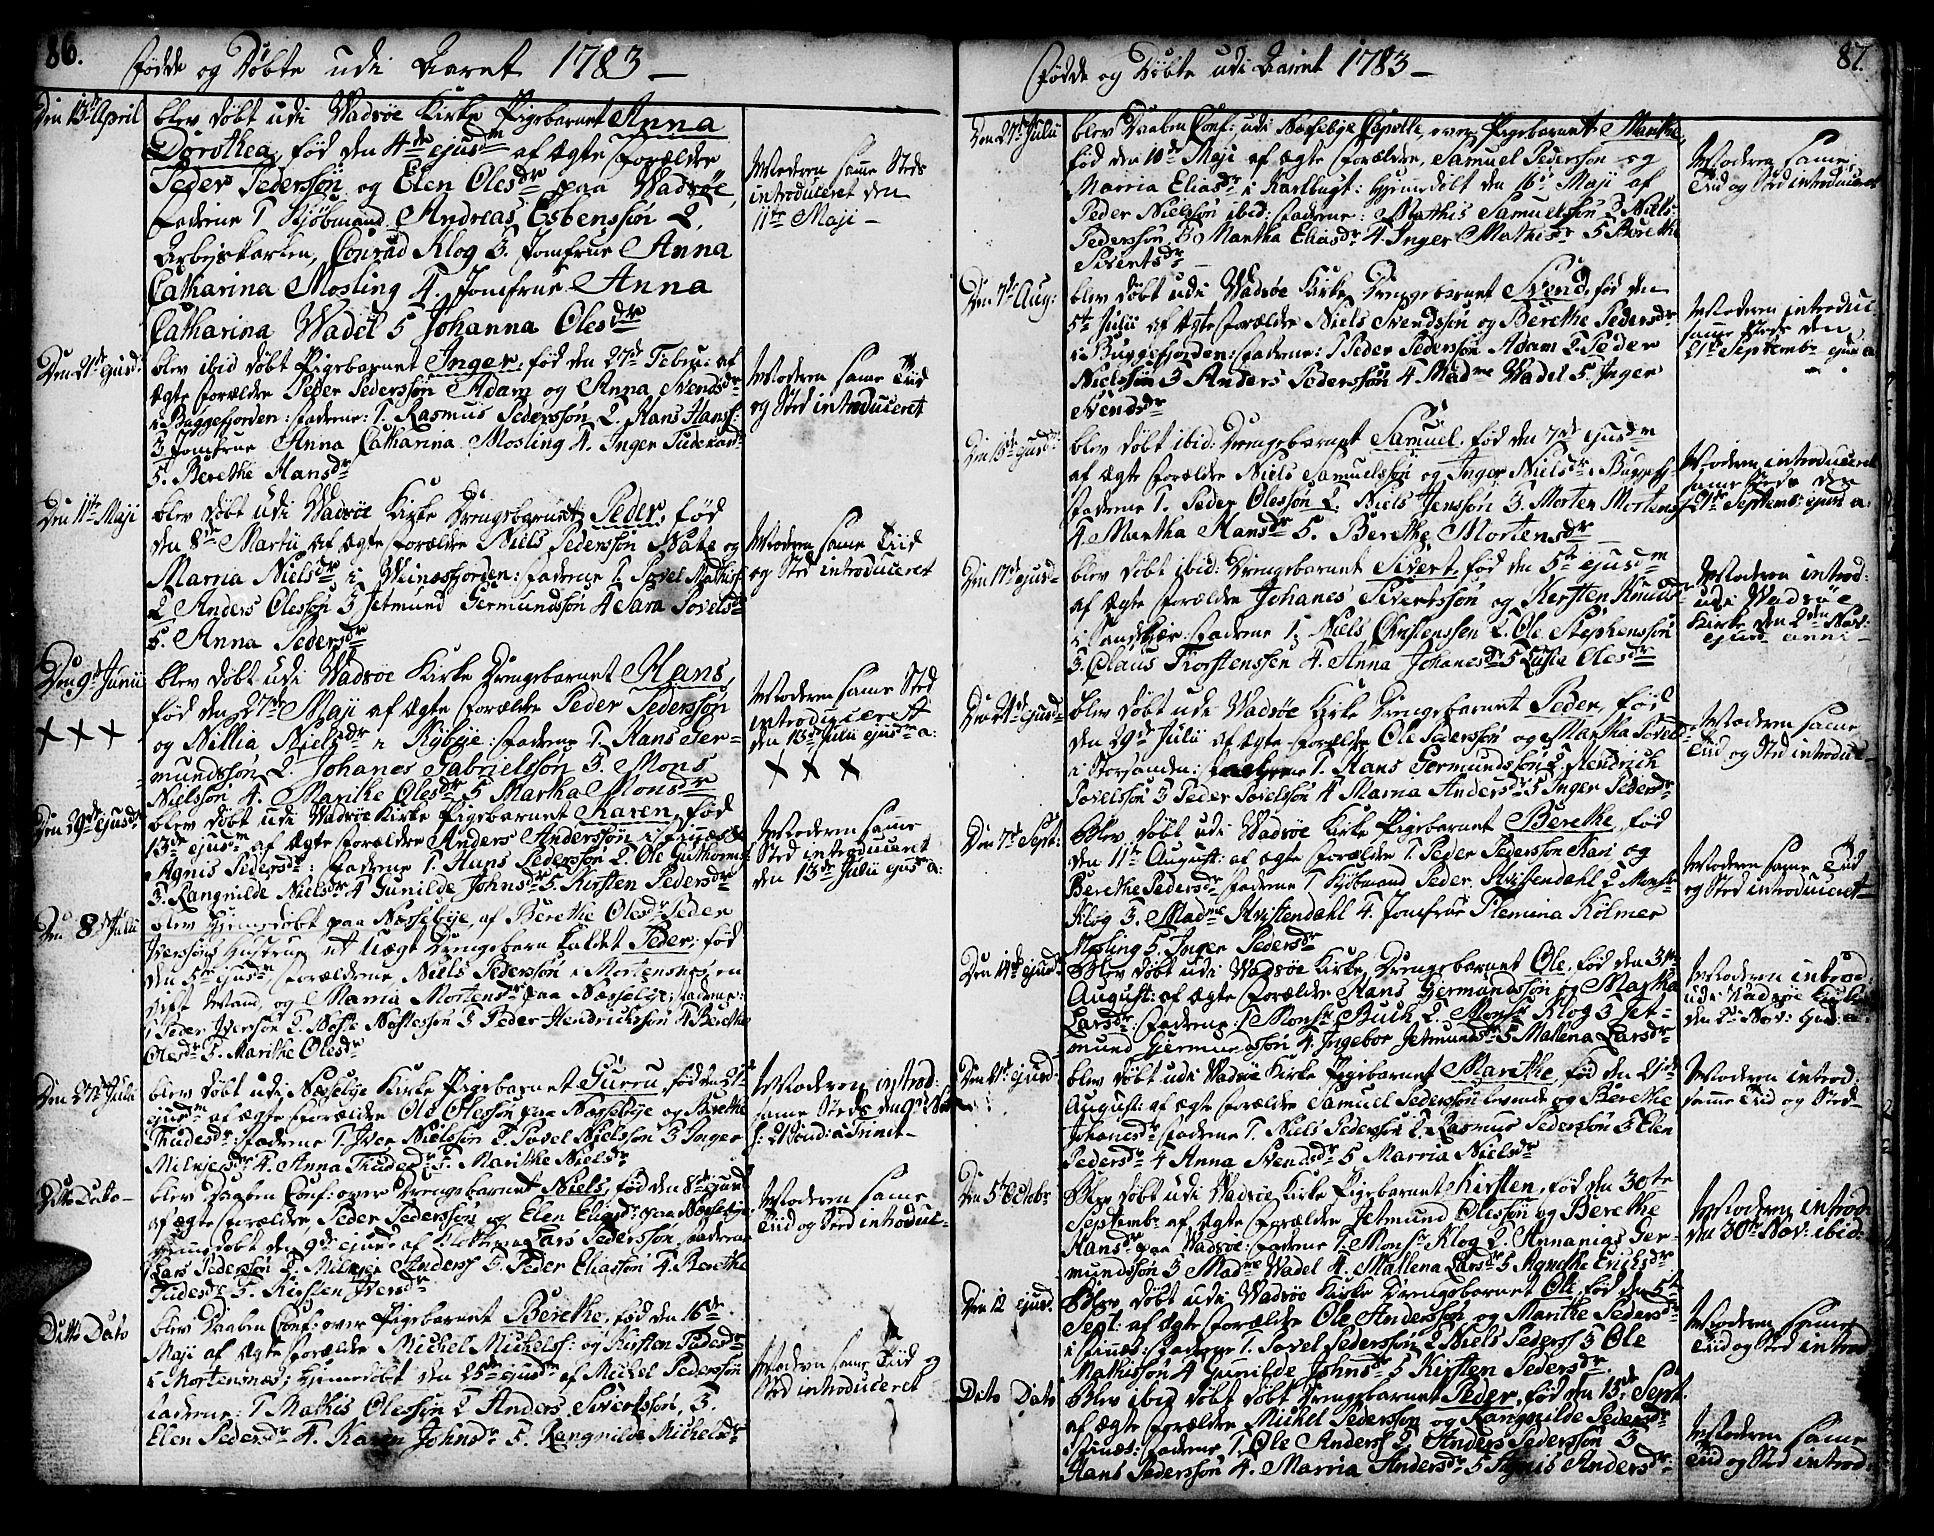 86.
Fødde og Døbte udi Aaret 1783 —
Den 13de April
blev døbt udi Wadsøe Kirke Pigebarnet Anna
Dorothea, fød den 4de ejusdm af Ægte Forældre
Peder Pederssøn og Elen Olesdr paa Wadsøe,
Fadderne 1 Kjøbmand Andreas Esbenssøn 2,
Arbejskarlen, Conrad Klog 3. Jomfrue Anna
Catharina Mosling 4. Jomfrue Anna
Catharina Wadel 5 Johanna Olesdr
Moderen same Steds
introduceret den
11te Maji —
Den 21de ejusd:
blev ibid døbt Pigebarnet Inger, fød den 27de Febru: af
Ægte Forældre Peder Pederssøn Adam og Anna Svendsdr
i Buggefjorden: Fadderne: 1. Rasmus Pederssøn 2. Hans Hanss:
3 Jomfrue Anna Catharina Mosling 4. Inger
5. Berethe Hansdr
Moderen same Tiid
og Sted introduceret
Den 11te Maji
blev døbt udi Wadsøe Kirke Drengebarnet Peder, fød
den 8de Martii af Ægte Forældre Niels Pederssøn og
Marria Nielsdr i : Fadderne 1. Povel Mathiss:
2 Anders Olessøn 3 Jetmund Germundssøn 4 Sara Povelsdr
5. Anna Pedersdr
Moderen same Tiid
og Sted introduceret
Den 9de Junii
× × ×
blev døbt udi Wadsøe Kirke Drengebarnet Hans,
fød den 27de Maji af Ægte Forældre Peder Pederssøn
og Nillia Nielsdr i Kybye: Fadderne 1. Hans Ger-
mundssøn 2. Johanes Gabrielssøn 3. Mons
Nielssøn 4. Marithe Olesdr 5 Martha Monsdr
Moderen same Sted
introduceret
den 13de Julii ejusdm a:
× × ×
Den 29de ejusdm
blev døbt udi Wadsøe Kirke Pigebarnet Karen, fød
13de ejusdm af Ægte Forældre Anders Anderssøn i
Agnis Pedersdr: Fadderne 1. Hans Pederssøn 2. Ole Guthorms:
3. Rangnilde Nielsdr 4 Gunilde Johnsdr 5. Kirsten Pedersdr
Moderen same
Sted introduceret
den 13de Julii ejusdm a:
Den 8de Julii
blev Hjemedøbt paa Næssebye, af Berethe Olesdr Peder
Iverssøns Hustrue et Uægte Drengebarn kaldet Peder: fød
den 5te ejusdm Forældrene, Niels Pederssøn i Mortensnes, en
gift Mand, og Marria Mortensdr paa Næssebye: Fadderne:
1 Peder Iverssøn 2. 3 Peder Hendrichssøn 4 Berethe
Olesdr 5. Marithe Olesdr
Den 27de Julii
blev døbt udi Næssebye Kirke Pigebarnet Gurru, fød den 21de
ejusdm af Ægte Forældre Ole Olessøn paa Næssebye og Berethe
Thudesdr: Fadderne 1. Iver Nielssøn 2. Povel Nielssøn 3 Inger
4. Anna Thudesdr 5. Marithe Nielsdr
Moderen introd:
same Steds den
Trinit —
Ditto Dato —
blev Daaben Conf: over Drengebarnet Niels, fød den 8de ejusd
af Ægte Forældre, Peder Pederssøn og Elen Eliasdr paa Næssebye:
hjemedøbt den 9de ejusd af Klokkeren Lars Pederssøn Fadderne
1 Lars Pederssøn 2. Anderss 3. Peder Eliassøn 4. Berethe
Tudesdr 5. Kirsten Iversdr
Moderen same
Tiid og Sted introduc —
Ditto Dato
blev Daaben Conf: over Pigebarnet Berethe, fød den 16de
Maji af Ægte Forældre Michel Michels: og Kirsten Pedersdr
i Mortensnæs; hjemedøbt den 25de ejusd af Michel Pederssøn
Fadderne: 1 Mathis Olessøn 2 Anders Sivertssøn, 3.
Elen Pedersdr 4. Karen Johnsdr 5. Rangnilde Michelsdr
Moderen same Tiid og
Sted introduceret
87.
Fødde og Døbte udi Aaret 1783 —
Den 27de Julii
blev Daaben Conf: udi Næssebye Capelle, over Pigebarnet Marithe,
fød den 10de Maji af Ægte Forældre, Samuel Pederssøn og
Marria Eliasdr i Karlbugt: hjemedøbt den 16de Maji af
Peder Nielssøn ibid: Fadderne: Mathis Samuelssøn 2 Niels
Pederssøn 3 Martha Eliasdr 4 Inger Mathisdr 5 Berethe
Sivertsdr —
Moderen same
Tiid og Sted introduceret
Den 7de Aug:
blev døbt udi Wadsøe Kirke Drengebarnet Svend, fød den
5te Julii af Ægte Forældre Niels Svendssøn og Berethe Pedersdr
i Buggefjorden: Fadderne: 1 Peder Pederssøn Adam 2 Peder
Nielssøn 3 Anders Pederssøn 4 Madme Wadel 5 Inger
Svendsdr
Moderen introduc
same Steds den
21de Septembr ejusd a:
Den 15de ejusd:
blev døbt ibid: Drengebarnet Samuel, fød den 7de ejusdm
af Ægte Forældre Niels Samuelssøn og Inger Nielsdr i Buggefj:
Fadderne 1. Peder Olessøn 2. Niels Jenssøn 3. Morten Mortens:
4. Martha Hansdr 5. Berethe Mortensdr —
Moderen introduceret
same Steds den
21de Septemb: ejusd a:
Den 17de ejusd —
blev døbt ibid: Drengebarnet Sivert, fød den 5te ejusdm
af Ægte Forældre Johanes Sivertssøn og Kirsten Knudsdr
i : Fadderne 1. Niels Christenssen 2. Ole Stephenssøn
3. Claus Thorstenssen 4. Anna Johanesdr 5 Lusie Olesdr
Moderen introd:
udi Wadsøe
Kirke den 2den Nov:
ejusd anni —
Den 24de ejusd —
blev døbt udi Wadsøe Kirke Drengebarnet Peder, fød
den 29de Julii af Ægte Forældre Ole Pederssøn og Martha Povelsdr
i Storsanden: Fadderne 1. Hans Germundssøn 2 Hendrich
Povelssøn 3 Peder Povelssøn 4 Marria Andersdr 5 Inger Pedersdr
Moderen same
Tiid og Sted introduc —
Den 7de Sept:
Blev døbt udi Wadsøe Kirke Pigebarnet Berethe, fød
den 11te August: af Ægte Forældre 1. Peder Pederssøn Kari og
Berethe Pedersdr Fadderne 1 Kjøbmand Peder Kristendahl 2 Monsr
Klog 3. Madme Kristendahl 4. Jomfrue Flemina Kølmer
Mosling 5. Inger Pedersdr
Moderen same Tiid
og Sted introduceret —
Den 14de ejusd —
Blev døbt udi Wadsøe Kirke, Drengebarnet Ole, fød den 31te
August: af Ægte Forældre Hans Germundssøn og Martha
Larsdr: Fadderne: 1 Monsr Buch 2 Monsr Klog 3 Jet-
mund Gjermundssøn 4. Ingebor Jetmundsdr 5 Mallena Larsdr
Moderen introd
udi Wadsøe Kirke
den 2den Nov: ejusd a:
Den 21de ejusd —
blev døbt udi Wadsøe Kirke Pigebarnet Marethe, fød den 21de
August: af Ægte Forældre Samuel Pederssøn og Berethe
Johanesdr Fadderne 1. Niels Pederssøn 2. Rasmus Pederssøn 3 Elen
Pedersdr 4 Anna Svendsdr 5 Marria Nielsdr
Moderen introd:
same Tiid og Sted —
Den 5te Octobr
Blev døbt udi Wadsøe Kirke Pigebarnet Kirsten, fød den 30te
Septembr af Ægte Forældre Jetmund Olessøn og Berethe
Hansdr paa Wadsøe: Fadderne 1. Monsr Klog 2. Annanias Ger-
mundssøn 3 Madme Wadel 4. Mallena Larsdr 5 Agnethe Erichsdr
Moderen introd
den 30te Nov: ibid:
Den 12 ejusd
Blev døbt udi Wadsøe Kirke Drengebarnet Ole, fød den 5te
Sept: af Ægte Forældre Ole Anderssøn og Marithe Pedersdr
i : Fadderne 1. Povel Pederssøn 2 Niels Pederss 3 Ole
Mathissøn 4 Gunilde Johnsdr 5 Kirsten Pedersdr
Moderen same
Tiid og Sted introd
Dato Dato
Blev ibid døbt døbt Drengebarnet Peder, fød den 15de Sept.
af Ægte Forældre Michel Pederssøn og Rangnilde Pedersdr
: Fadderne 1. Ole Anderss 2 Anders Pederssøn 3
Hans Pederssøn 4. Marria Andersdr 5 Agnis Andersdr:
Moderen same
Tiid og Sted introd: